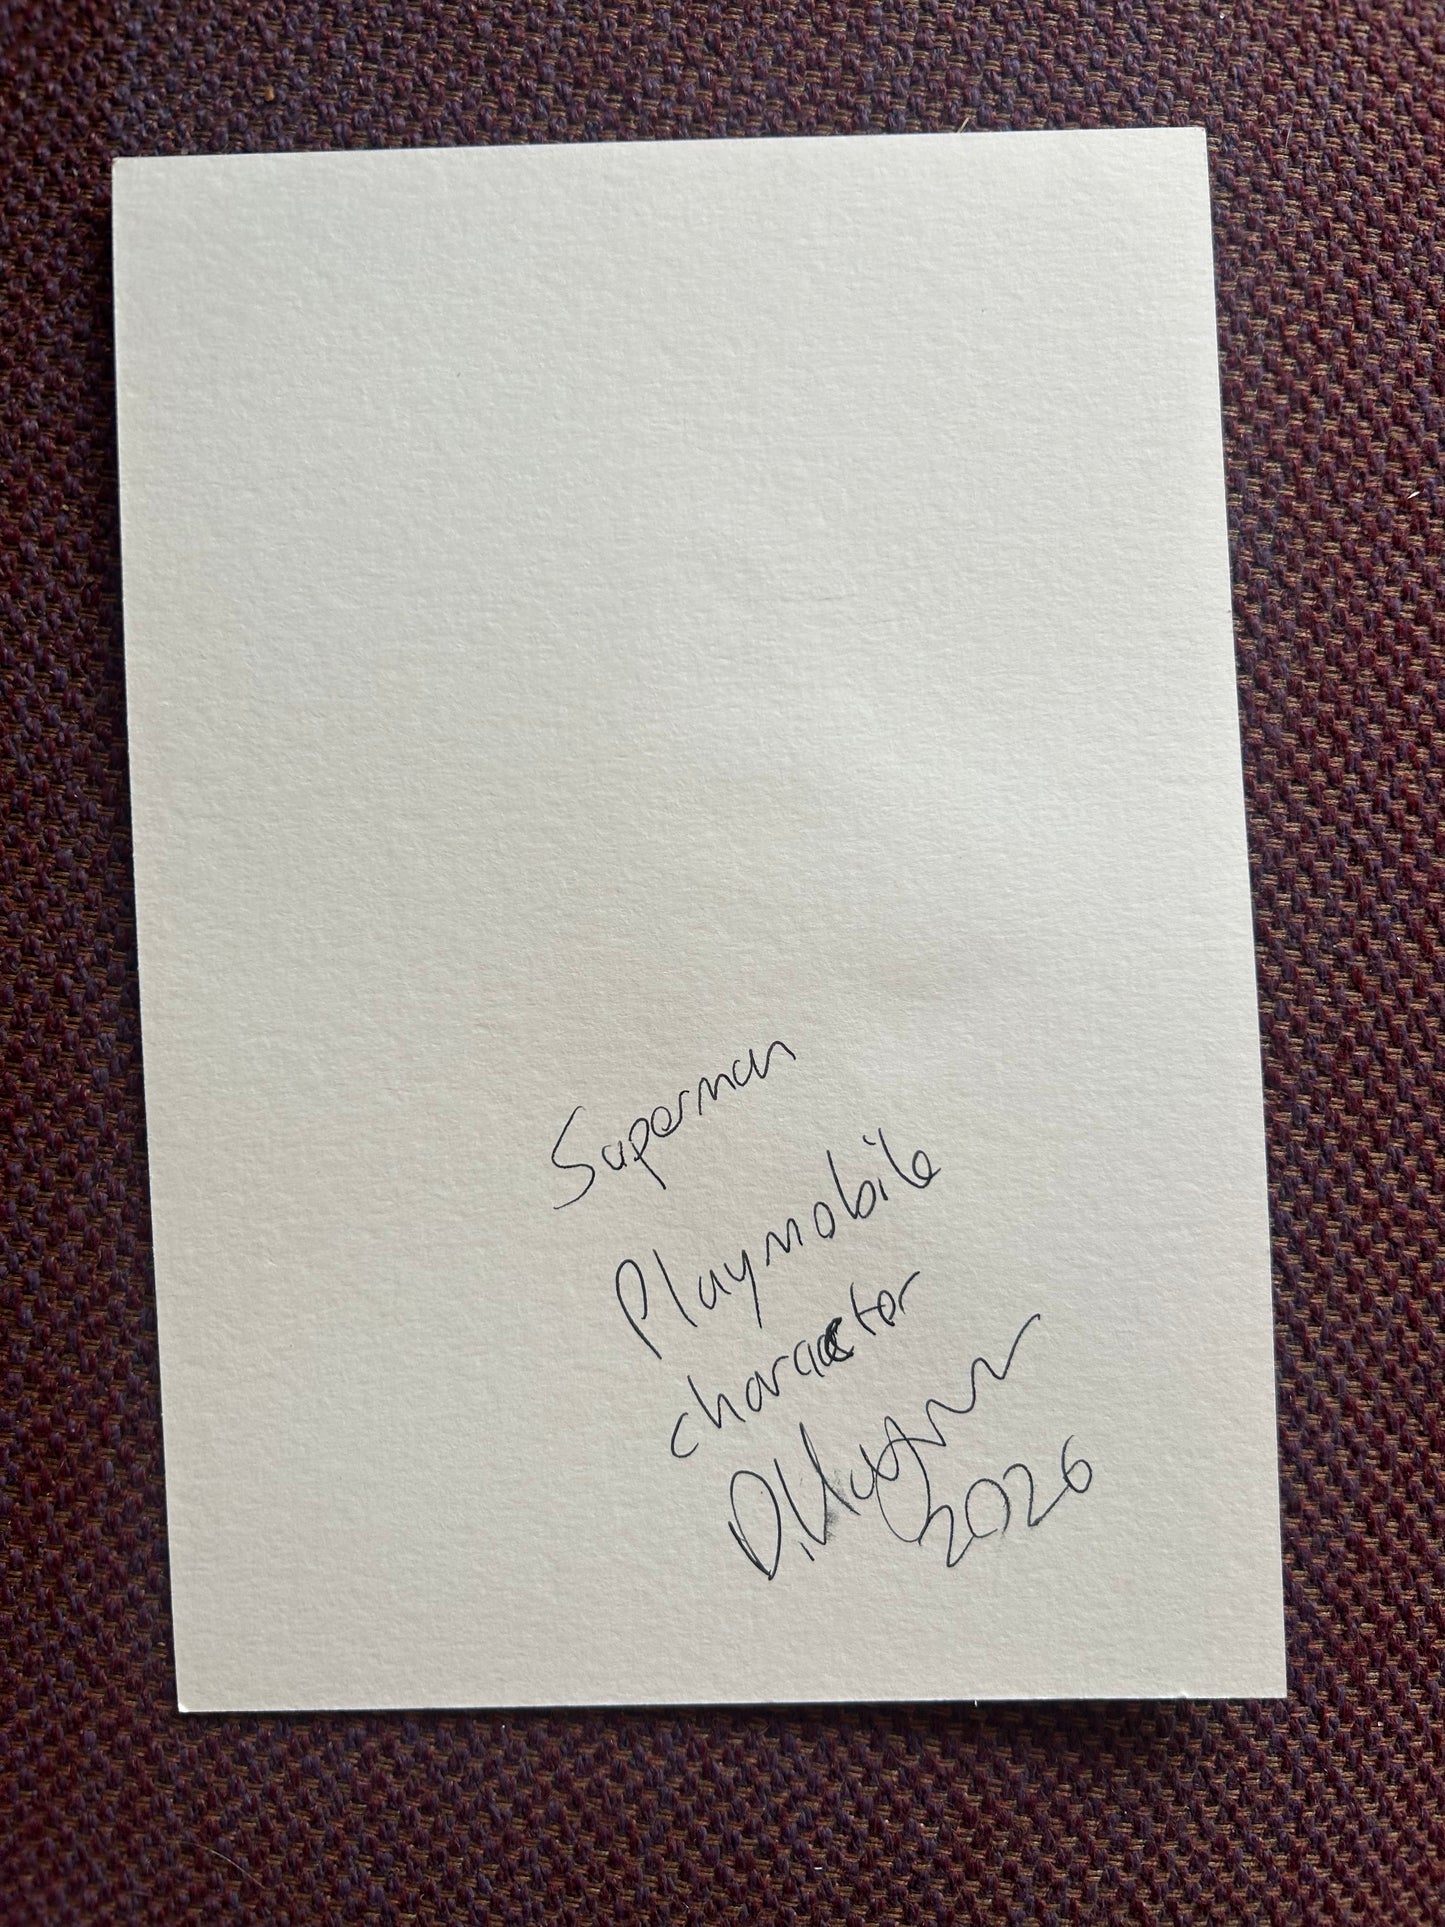 Superman
Playmobile
character
2026